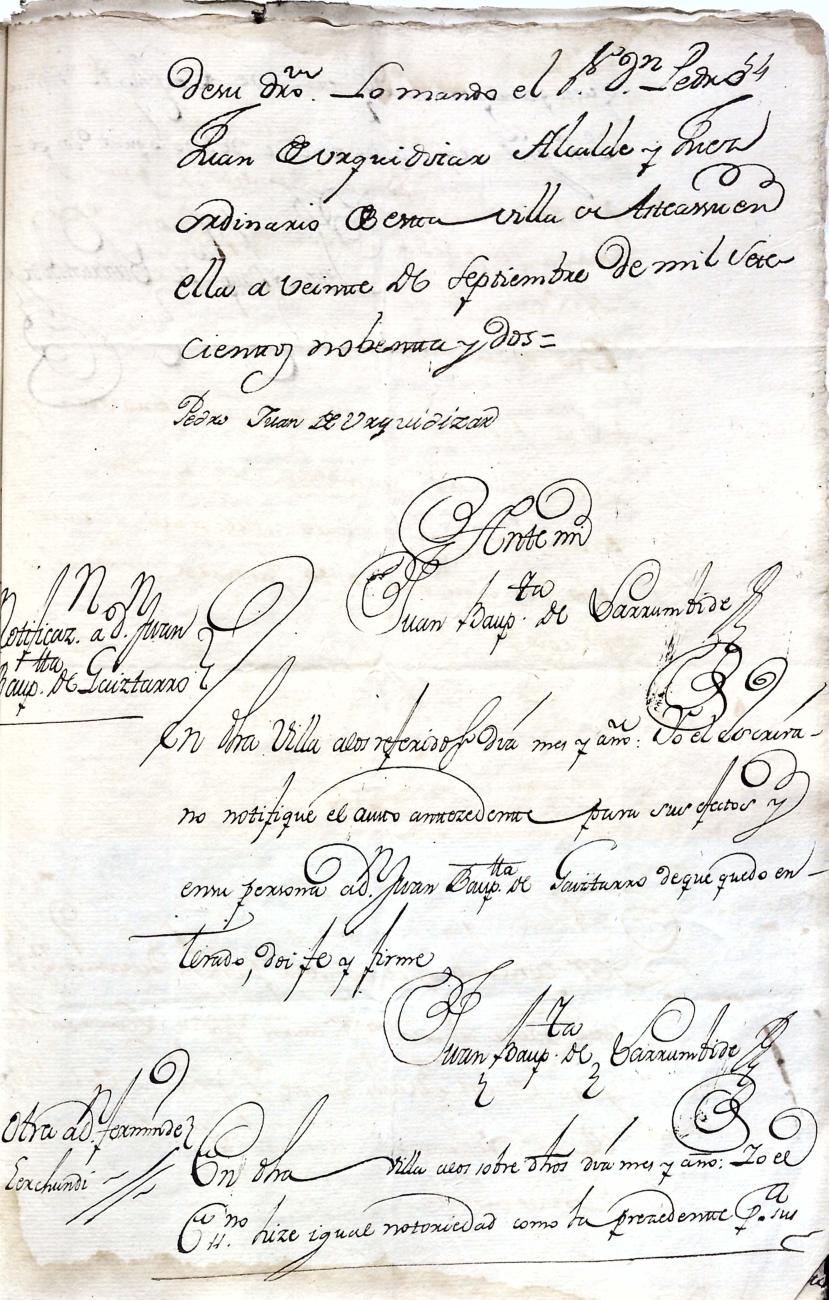 desu dro. Lo mando el Sr. Dn. Pedro 54
Juan de Urquidizar Alcalde y Juez
ordinario de esta villa de Asteassu en
ella a veinte de Septiembre de mil Sete-
cientos nobenta y dos=
Pedro Juan de Urquidizar
Ante mi
Juan Baupta. de Larrumbide
Notificazn. a dn. Juan
Bauptta. de Gaiztarro
En dha Villa a los referidos dia mes y año: Yo el escriva-
no notifique el auto antezedente para sus efectos y
en su persona a dn. Juan Bauptta. de Gaiztarro de que quedo en-
terado, doi fe y firme
Juan Baupta. de Larrumbide
Otra a dn. fermin de
Lerchundi
En dha villa a los sobre dhos dia mes y año: Yo el
Essno. hize igual notoriedad como la prezedente pa. sus